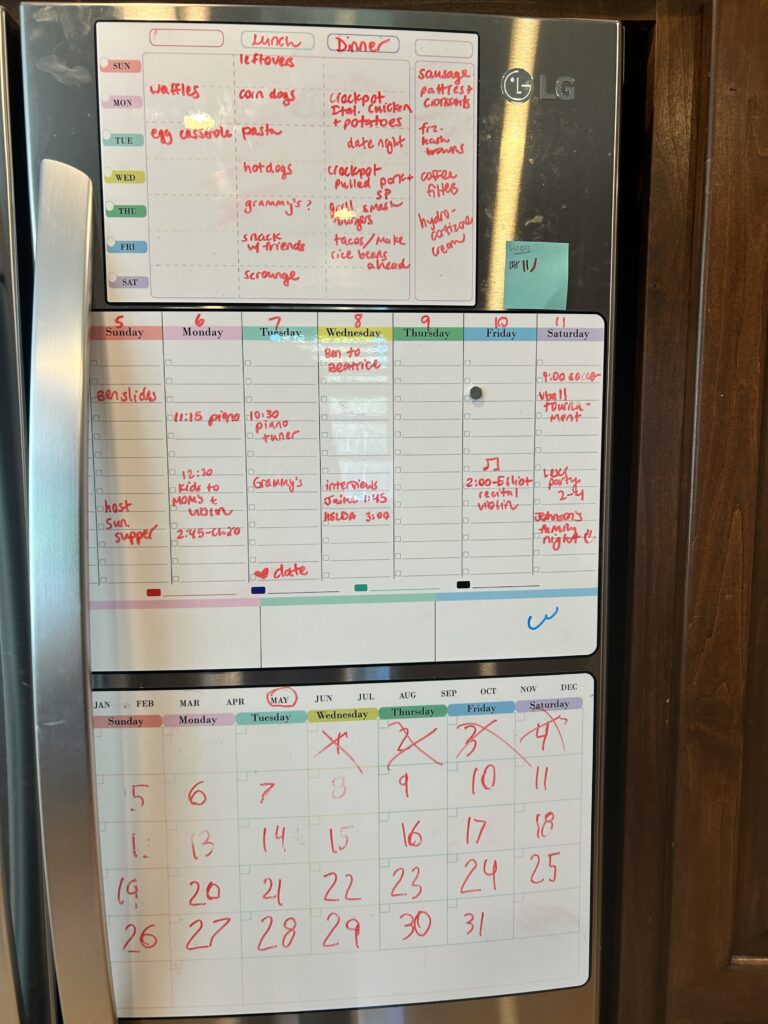 Lunch Dinner
SUN leftovers
sausage
patties +
croissants
MON waffles corn dogs crockpot
Ital. chicken
+ potatoes
TUE egg casserole pasta date night
frz.
hash
browns
WED hotdogs crockpot
pulled pork +
SP
coffee
filters
THU grammy's? grill smash
burgers
hydro-
cortizone
cream
FRI snack
w/ friends
tacos/make
rice beans
ahead
SAT scrounge
LG
5 6 7 8 9 10 11
Sunday Monday Tuesday Wednesday Thursday Friday Saturday
Ben slides
host
sun.
supper
11:15 piano
12:30
kids to
MOM's +
violin
2:45-chiro
10:30
piano
tuner
Grammy's
♥ date
Ben to
Beatrice
interviews
1:45
3:00
2:00-Elliot
recital
violin
9:00 soccer
vball
tourna-
ment
party
2-4
Johnson's
family
night
JAN FEB MAR APR MAY JUN JUL AUG SEP OCT NOV DEC
Sunday Monday Tuesday Wednesday Thursday Friday Saturday
1 2 3 4
5 6 7 8 9 10 11
1 13 14 15 16 17 18
19 20 21 22 23 24 25
26 27 28 29 30 31